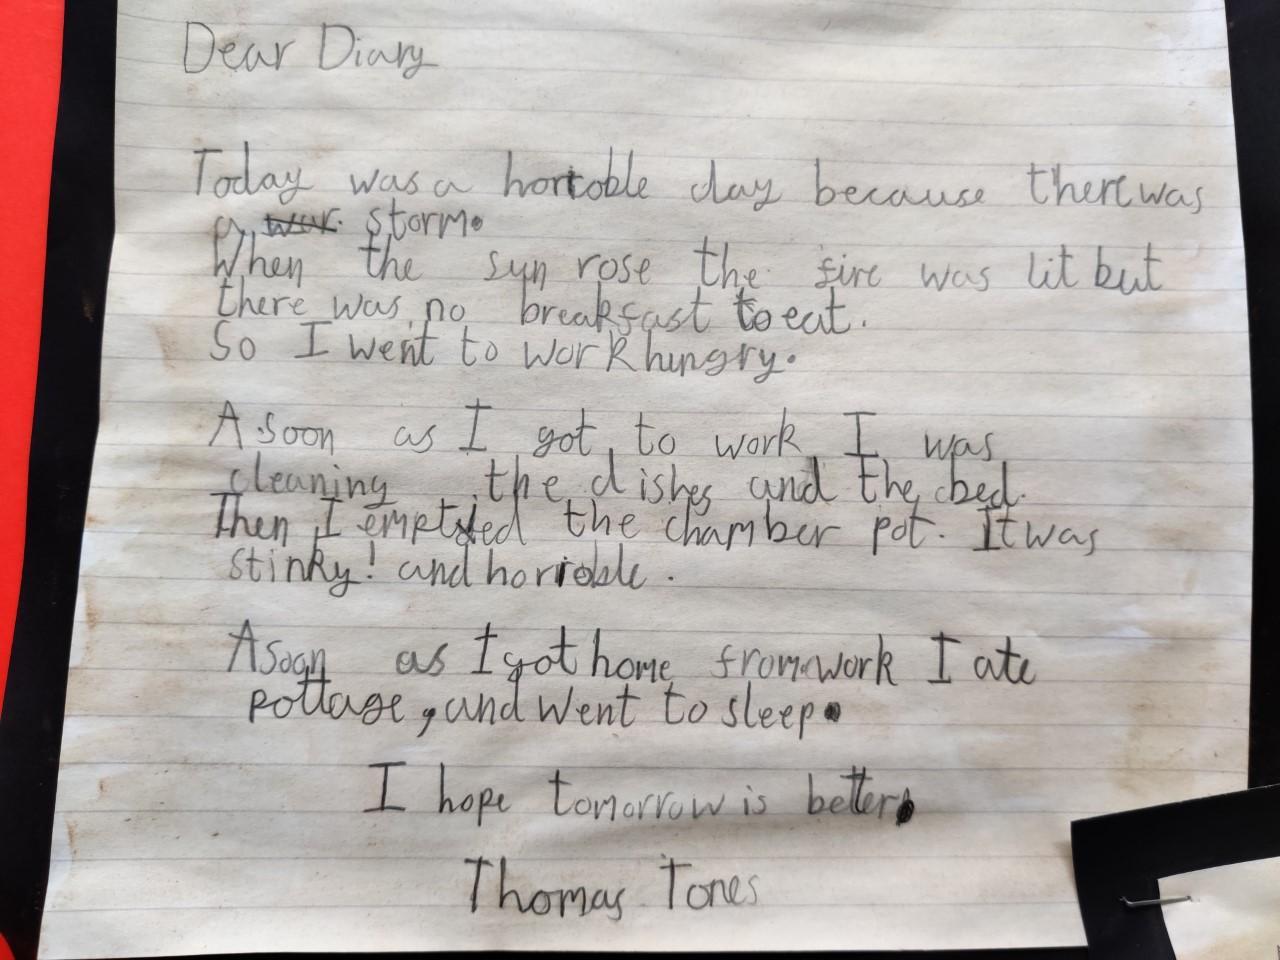 Dear Diary
Today was a horroble day because there was
a war storm.
When the sun rose the fire was lit but
there was no breakfast to eat.
So I went to work hungry.
A soon as I got to work I was
cleaning the dishes and the bed.
Then I emptyied the chamber pot. It was
stinky! and horrioble.
A soon as I got home from work I ate
pottage, and went to sleep.
I hope tomorrow is better.
Thomas Tones